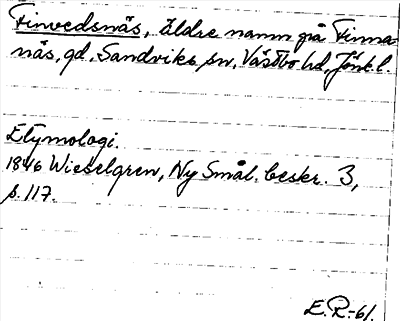 Finvedsnäs, äldre namn på Finna-
näs, gd, Sandviks sn, Västbo hd, Jönk. l.
Etymologi.
1846 Wieselgren, Ny Smål. beskr. 3,
s. 117.
E. R-61.